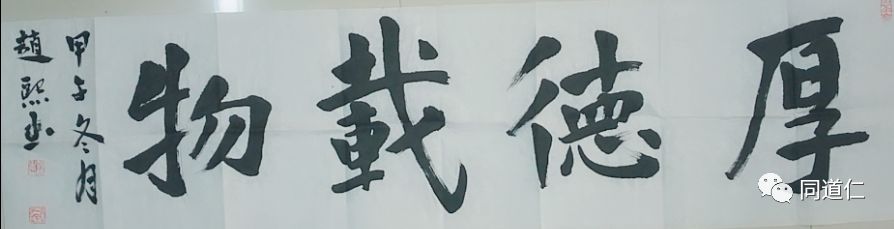 厚德載物
甲午冬月
趙熙書
同道仁